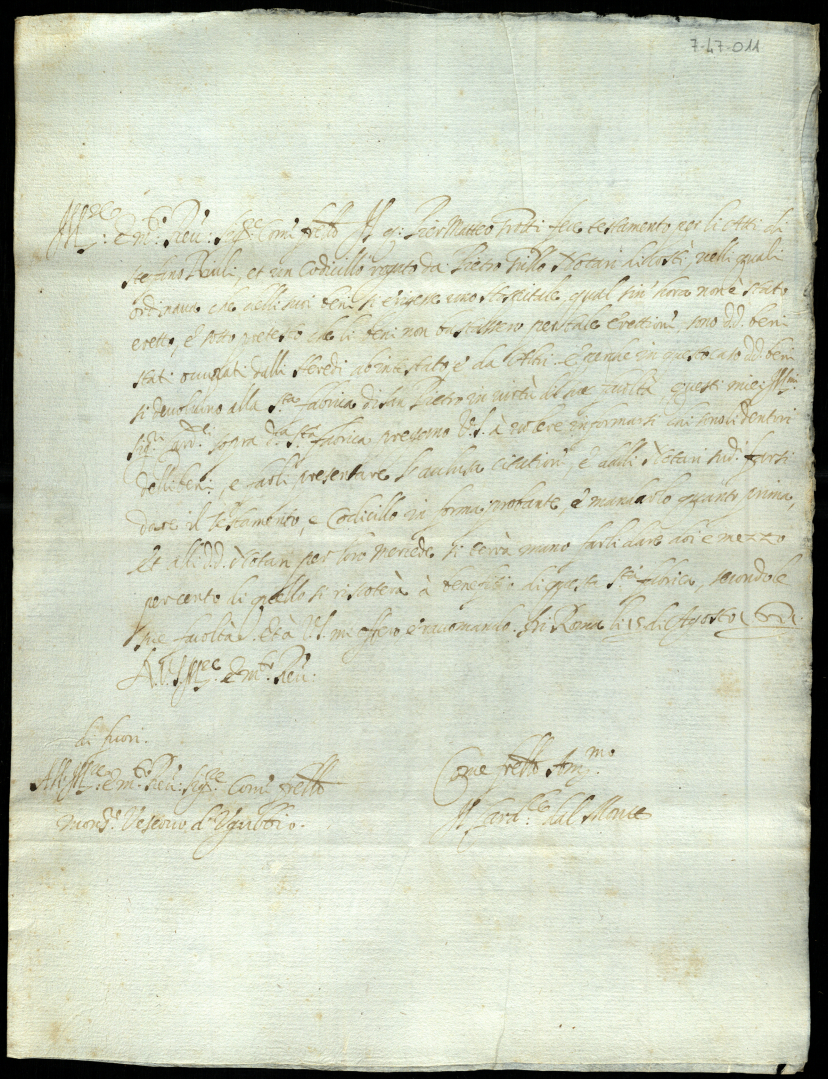 7-47-011
Ill.re e m.to Rev: Sig.re Come fratello Il q: Pier Matteo fece testamento per li Atti di
stefano, et un Codicillo rogato da Pietro Notari di costì nelli quali
ordinava che delli suoi beni si erigesse uno Hospitale, qual sin' hora non è stato
eretto, e sotto pretesto che li beni non bastassero per tale erettione, sono d.d. beni
stati occupati dalli Heredi ab intestato e da Altri e perche in questo caso d.d. beni
si devolvono alla s.ta fabrica di san Pietro in virtù di sue facoltà, questi miei Ill.mi
Sig.ri Card.li sopra d.ta s.ta fabrica pregano V.S. à volere informarsi chi sono li
delli beni, e farli presentare l'acclusa citatione, e dalli Notari sud.i farsi
dare il Testamento, e Codicillo in forma probante, e mandarlo quanto prima,
Et alli d.d. Notari per loro mercede si farà dare doi e mezzo
per cento di quello si riscoterà à benefitio di questa s.ta fabrica, secondo le
sue facoltà. Et à V.S. mi offero e racomando. Di Roma li 18 di Agosto
A V.S. Ill.re e m.to Rev:
di fuori.
All' Ill.re e m.to Rev: Sig.re Come fratello
Mons.r Vescovo d'Ugubbio.
Come fratello Am.mo
Il Card.le dal Monte